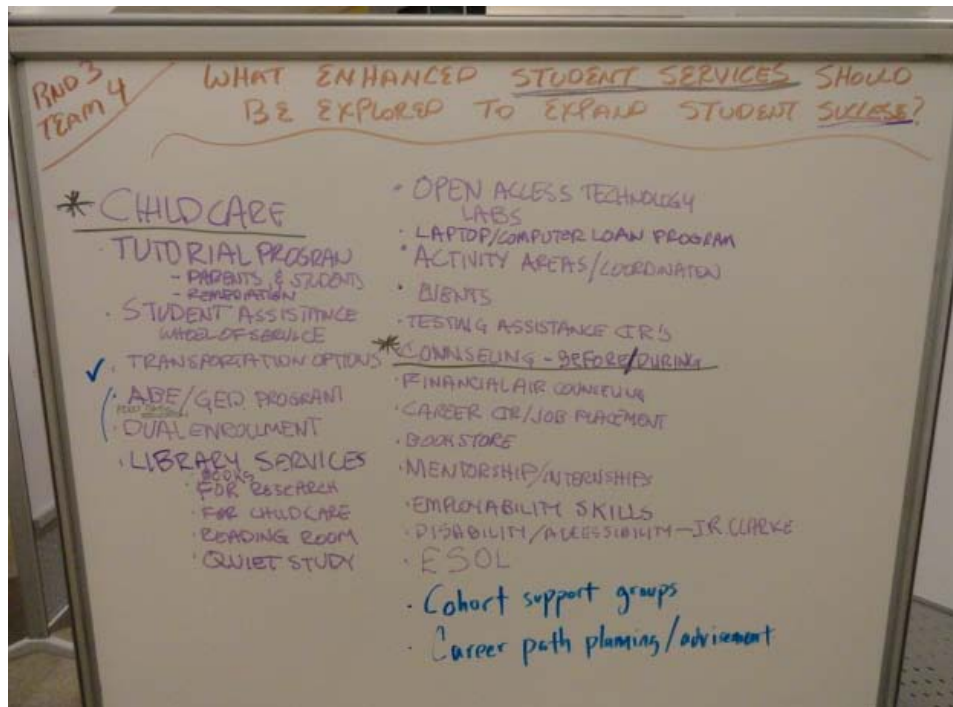 RND 3
TEAM 4
WHAT ENHANCED STUDENT SERVICES SHOULD
BE EXPLORED TO EXPAND STUDENT SUCCESS?
* CHILDCARE
· TUTORIAL PROGRAM
- PARENTS & STUDENTS
- REMEDIATION
· STUDENT ASSISTANCE
WHEEL OF SERVICE
✓ · TRANSPORTATION OPTIONS
· ABE/GED PROGRAM
· DUAL ENROLLMENT
· LIBRARY SERVICES
· BOOKS
· FOR RESEARCH
· FOR CHILDCARE
· READING ROOM
QUIET STUDY
· OPEN ACCESS TECHNOLOGY
LABS
· LAPTOP/COMPUTER LOAN PROGRAM
· ACTIVITY AREAS/COORDINATION
· EVENTS
· TESTING ASSISTANCE CTR'S
* COUNSELING - BEFORE/DURING
· FINANCIAL AID COUNSELING
· CAREER CTR/JOB PLACEMENT
· BOOKSTORE
· MENTORSHIP/INTERNSHIPS
· EMPLOYABILITY SKILLS
· DISABILITY/ACCESSIBILITY - J.R. CLARKE
· ESOL
· Cohort support groups
· Career path planning/advisement